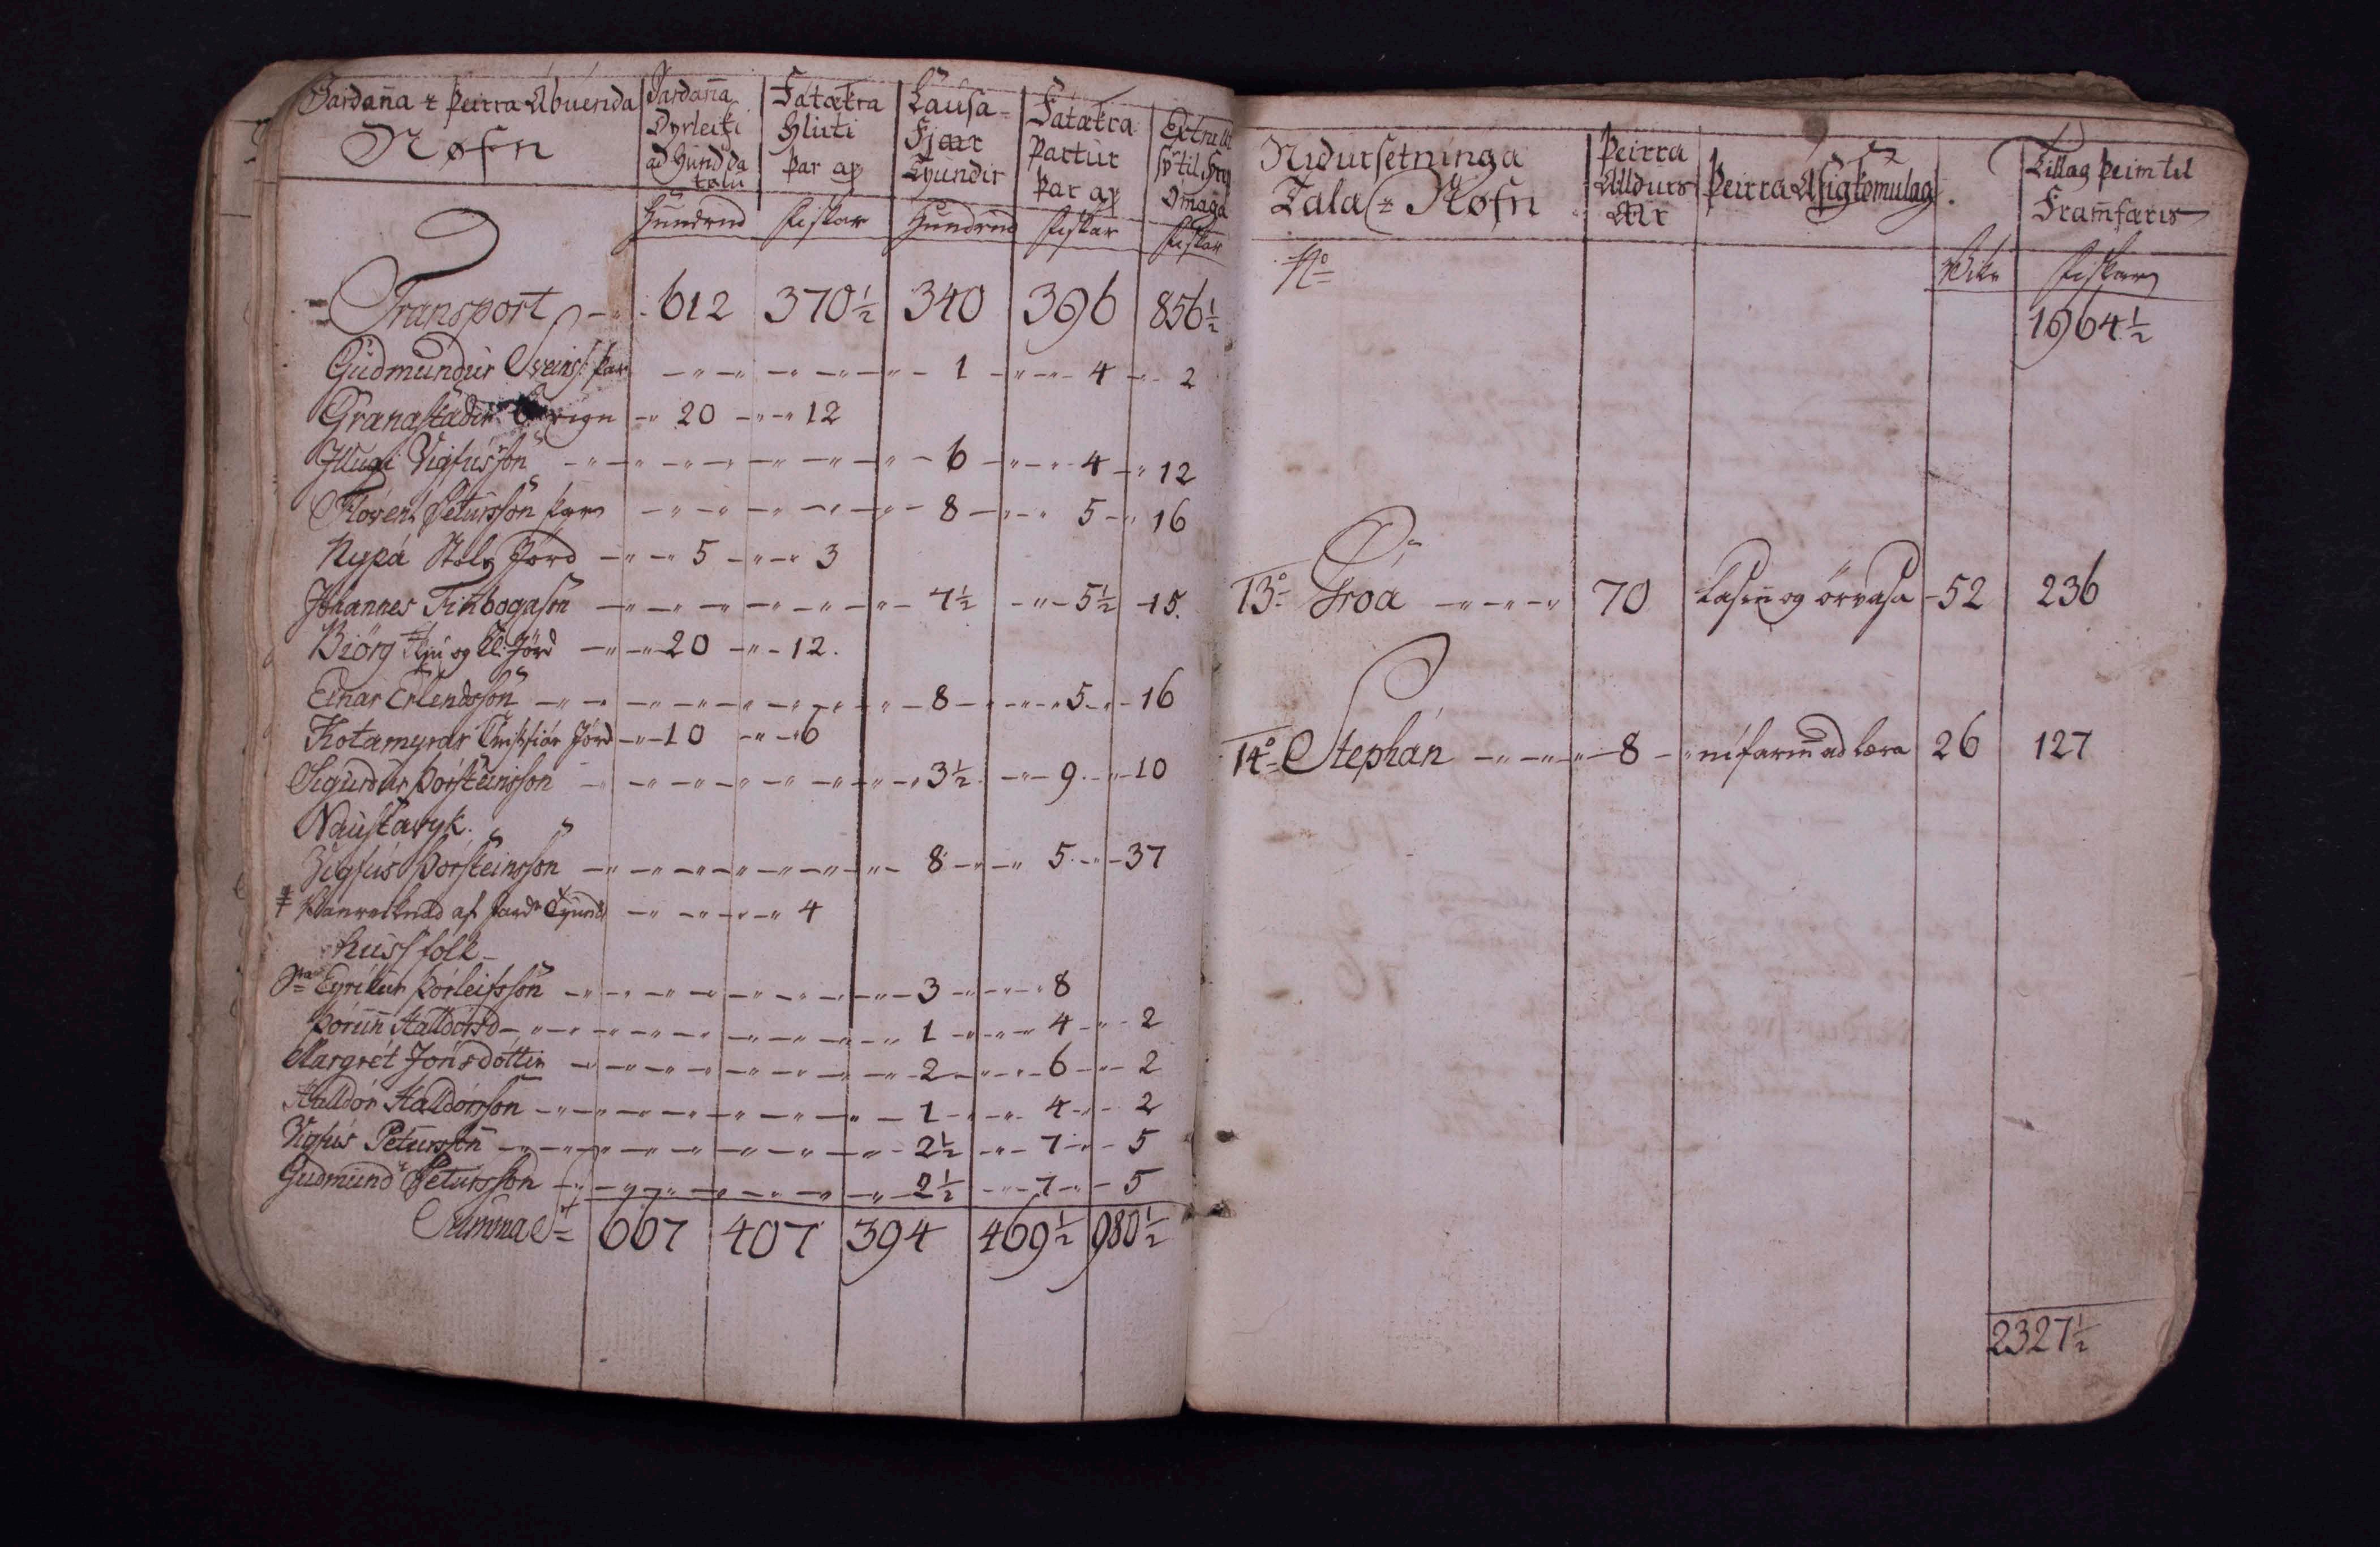 Jardan̄a & þeirra Ábúenda
Nøfn
Jardan̄a
Dyrleiki
ad Hundda
tølu
Fátækra
Hluti
þar af
Lausa-
Fjær
Tyundir
Fátækra
Partur
þar af
til
Omaga
Hundrud Fiskar Hundrud Fiskar Fiskar
Transport 612 370½ 340 396 856½
Gudmundur Sveinss. þar 1 4 2
Granastadir 20 12
Illugi Vigfússon 6 4 12
Flóvent Petursson þar 8 5 16
Nypá Jørd 5 3
Jóhannes Finbogason 7½ 5½ 15.
Biörg og Kl: Jørd 20 12.
Einar Erlendsson 8 5 16
Kotamyrar Jørd 10 6
Sigurdur Þorsteinsson 3½ 9 10
Naustavyk.
Vigfús Þorsteinsson 8 5 37
‡ Vanreiknad af Jard Tyund 4
Húss folk
Sra Eyrikur Þorleifsson 3 8
Þórun̄ Halldórsd 1 4 2
Margrét Jónsdóttir 2 6 2
Halldór Halldórsson 1 4 2
Vigfús Petursson 2½ 7 5
Gudmund Petursson 2½ 7 5
Summa 667 407 394 469½ 980½
Nidursetninga
Tala & Nøfn
Þeirra
Alldurs
Ár
Þeirra Ásigkomulag
Tillag þeim til
Fram̄færis
No
Vikr Fiskar
1964½
13o Gróa 70 Lasin̄ og örvasa 52 236
14o Stephán 8 nífarin̄ ad læra 26 127
2327½